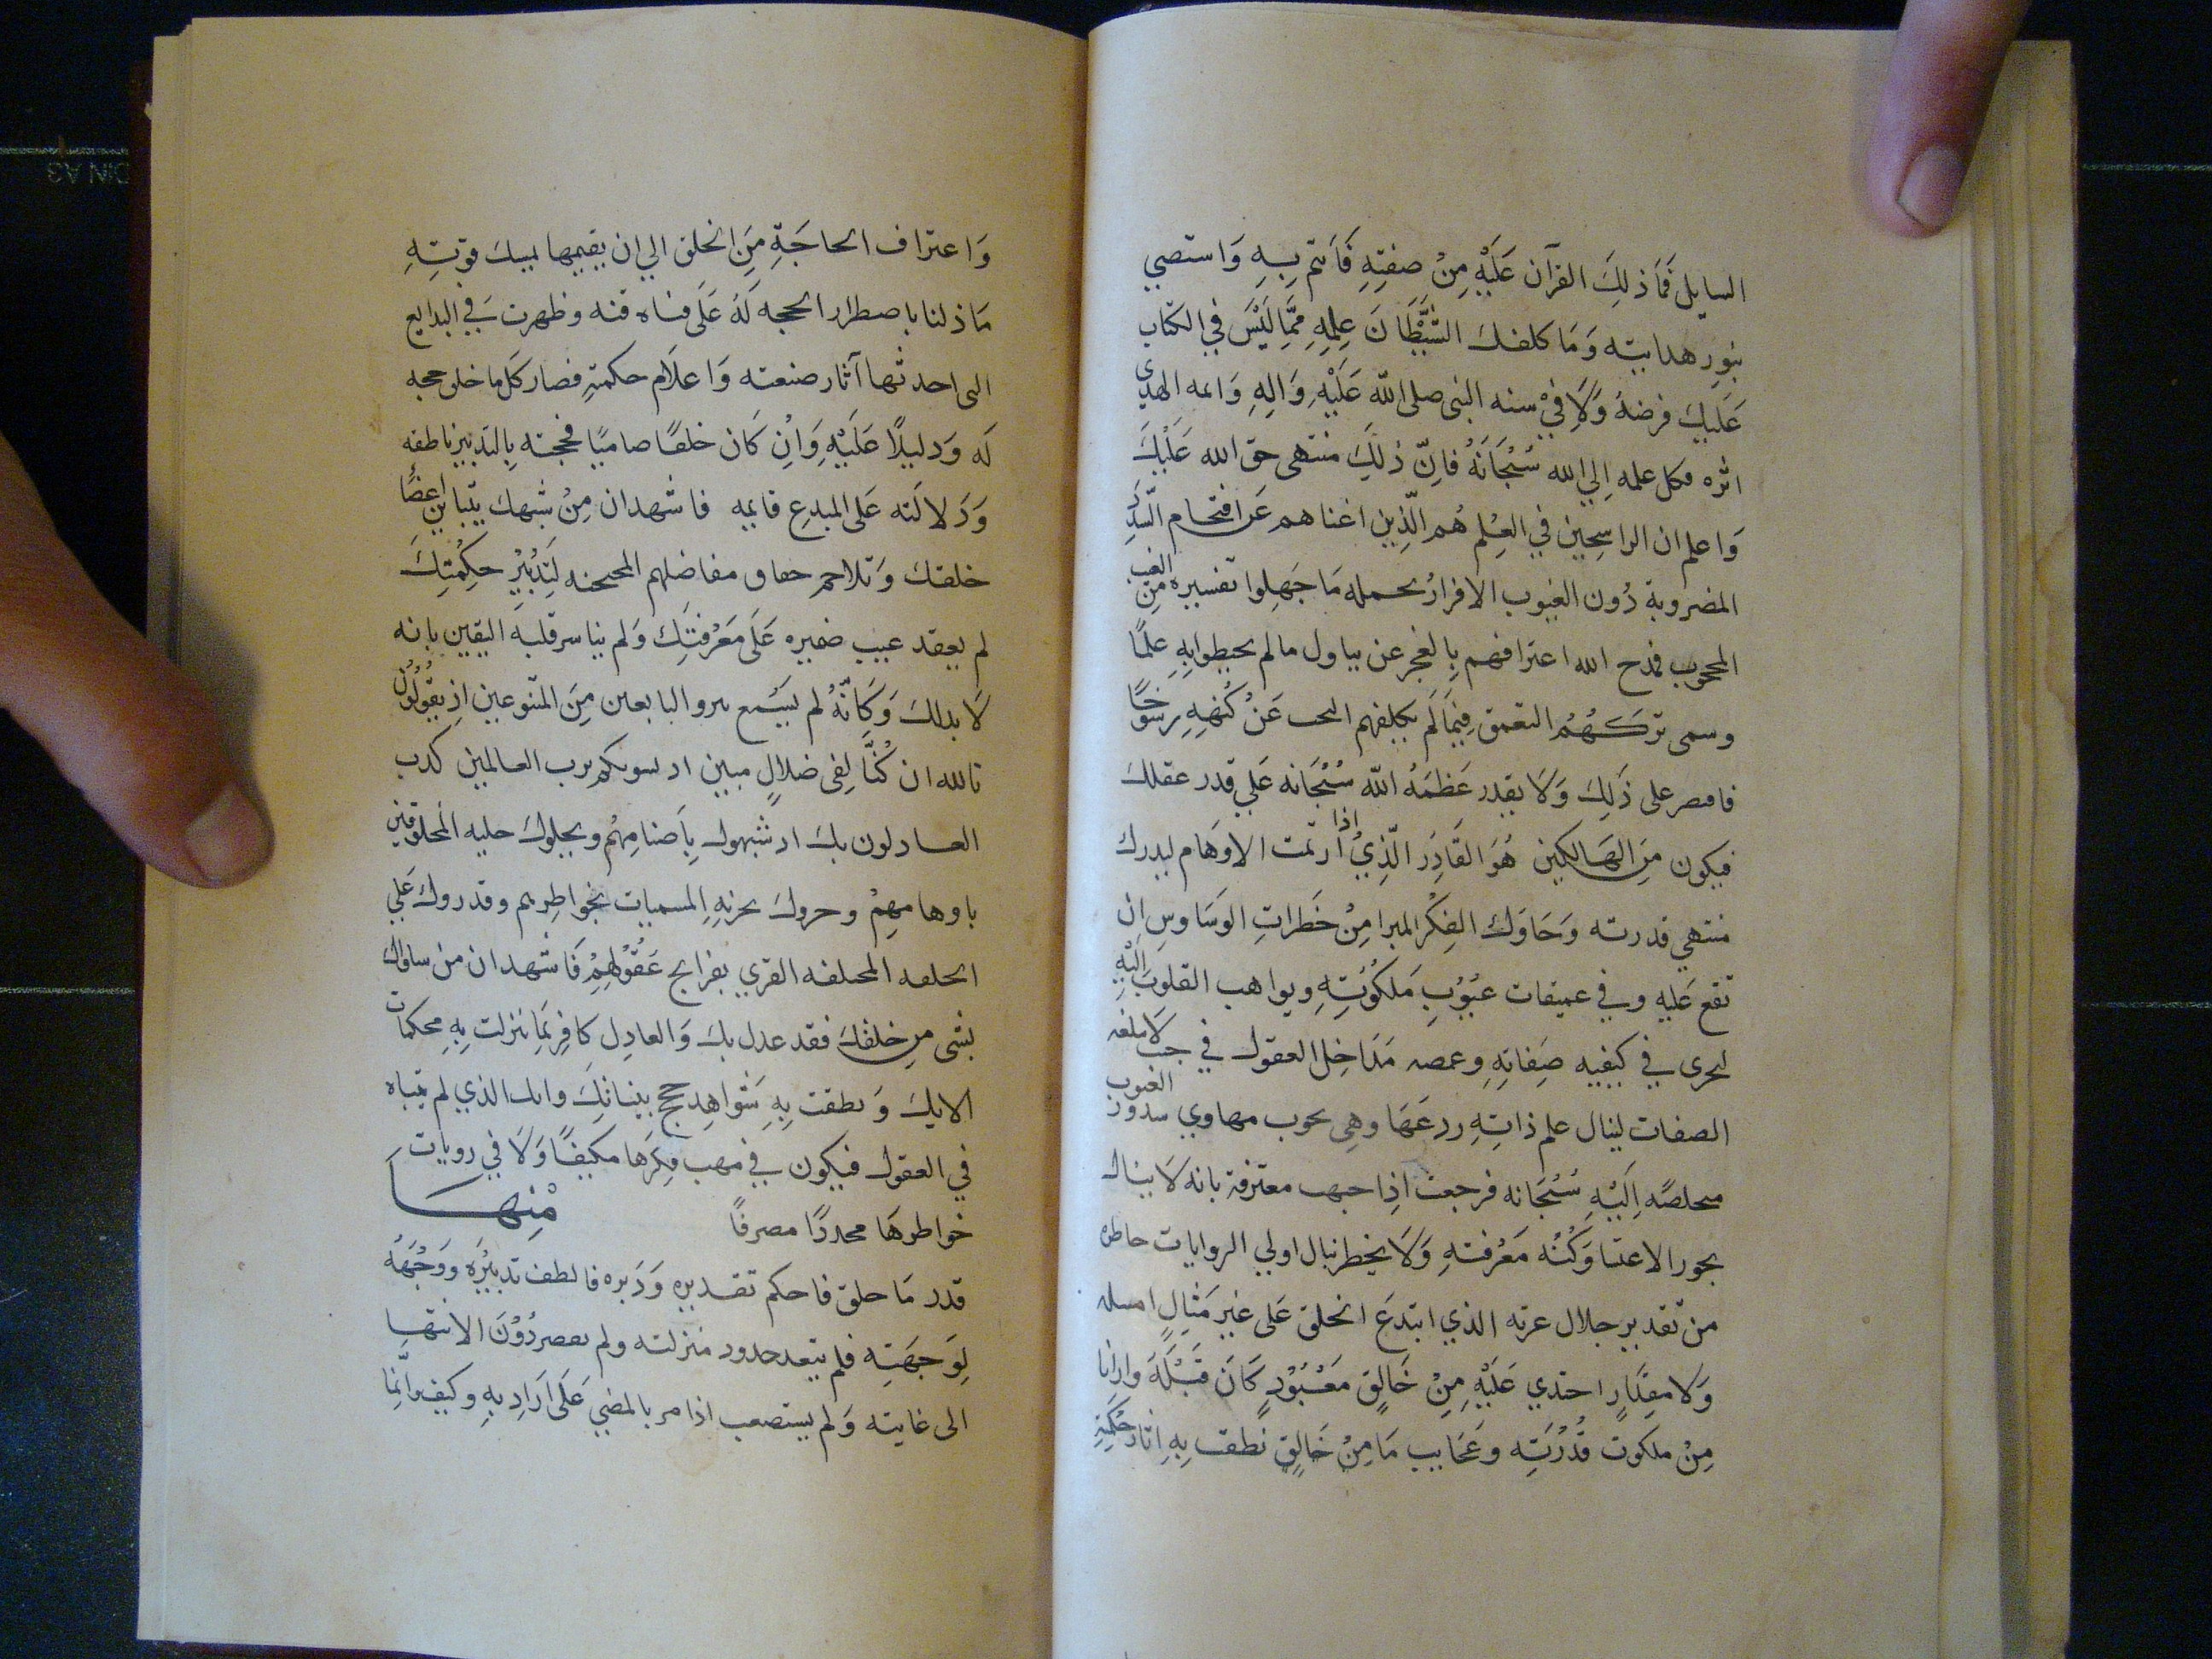 السايل فما ذلك القرآن عليه من صفته فأتم به واستضي
بنور هدايته وما كلفك الشيطان علمه مما ليس في الكتاب
عليك فرضه ولا في سنه النبى صلى الله عليه واله وايمه الهدى
اثره فكل علمه الي الله سبحانه فان ذلك منتهى حق الله عليك
واعلم ان الراسخين في العلم هم الذين اغناهم عن افتحام السدد
المضروبة دون الغيوب الاقرار بحمله ما جهلوا تفسيره من الغيب
المحجوب فمدح الله اعترافهم بالعجز عن تناول مالم يحيطوا به علما
وسمى تركهم التعمق فيما لم يكلفهم البحث عن كنهه رسوخا
فاقصر على ذلك ولا تقدر عظمة الله سبحانه علي قدر عقلك
فيكون من الهالكين هو القادر الذي اذا ارتمت الاوهام ليدرك
منتهي قدرته وحاول الفكر المبرا من خطرات الوساوس ان
تقع عليه وفي عميقات غيوب ملكوته ويواهب القلوب اليه
لتجرى في كيفيه صفاته وغمصه مداخل العقول في حيث لا تبلغه
الصفات لينال علم ذاته ردعها وهى تجوب مهاوي سدور الغيوب
متخلصة اليه سبحانه فرجعت اذا جبهت معترفة بانه لا ينال
بجور الاعتساف كنه معرفته ولا يخطر ببال اولي الرويات خاطره
من تقدير جلال عزته الذي ابتدع الخلق على غير مثال امتثله
ولا مقدار احتدي عليه من خالق معبود كان قبله وارانا
من ملكوت قدرته وعجايب ما من خالق نطقت به اثار حكمته
واعتراف الحاجة من الخلق الي ان يقيمها بمبيك قوته
ماذلنا باصطرار الحجه له على قنه وظهرت في البدايع
التى احدثها آثار صنعته واعلام حكمته فصار كل ما خلق حجه
له ودليلا عليه وان كان خلقا صاميا فحجته بالتدبير ناطقه
ودلالته على المبدع قايمه فاشهد ان من شبهك بتباين اعضا
خلقك وتلاحم حقاق مفاضلهم المحتجبه لتدبير حكمتك
لم يعقد غيب ضميره على معرفتك ولم يباسر قلبه اليقين بانه
لا ند لك وكانه لم يسمع تبرو التابعين من المتبوعين اذ يقولون
تالله ان كنا لفى ضلال مبين اذ نسويكم برب العالمين كذب
العادلون بك اذ شبهوك باصنامهم ونحلوك حليه المخلوقين
باوهامهم وجزوك تجزيه المسميات بخواطرهم وقدروك على
الخلقه المختلفه القوي بقرايح عقولهم فاشهد ان من ساواك
بشى من خلقك فقد عدل بك والعادل كافر بما نزلت به محكمات
الايك ونطقت به شواهد حجج بيناتك وانك الذي لم تتناه
في العقول فيكون في مهب فكرها مكيفا ولا في رويات
خواطرها محددا مصرفا منها
قدر ما خلق فاحكم تقديره ودبره فالطف تدبيره ووجهه
لوجهته فلم يتعد حدود منزلته ولم يقصر دون الانتها
الى غايته ولم يستصعب اذا مر بالمضي على اراد به وكيف وانما